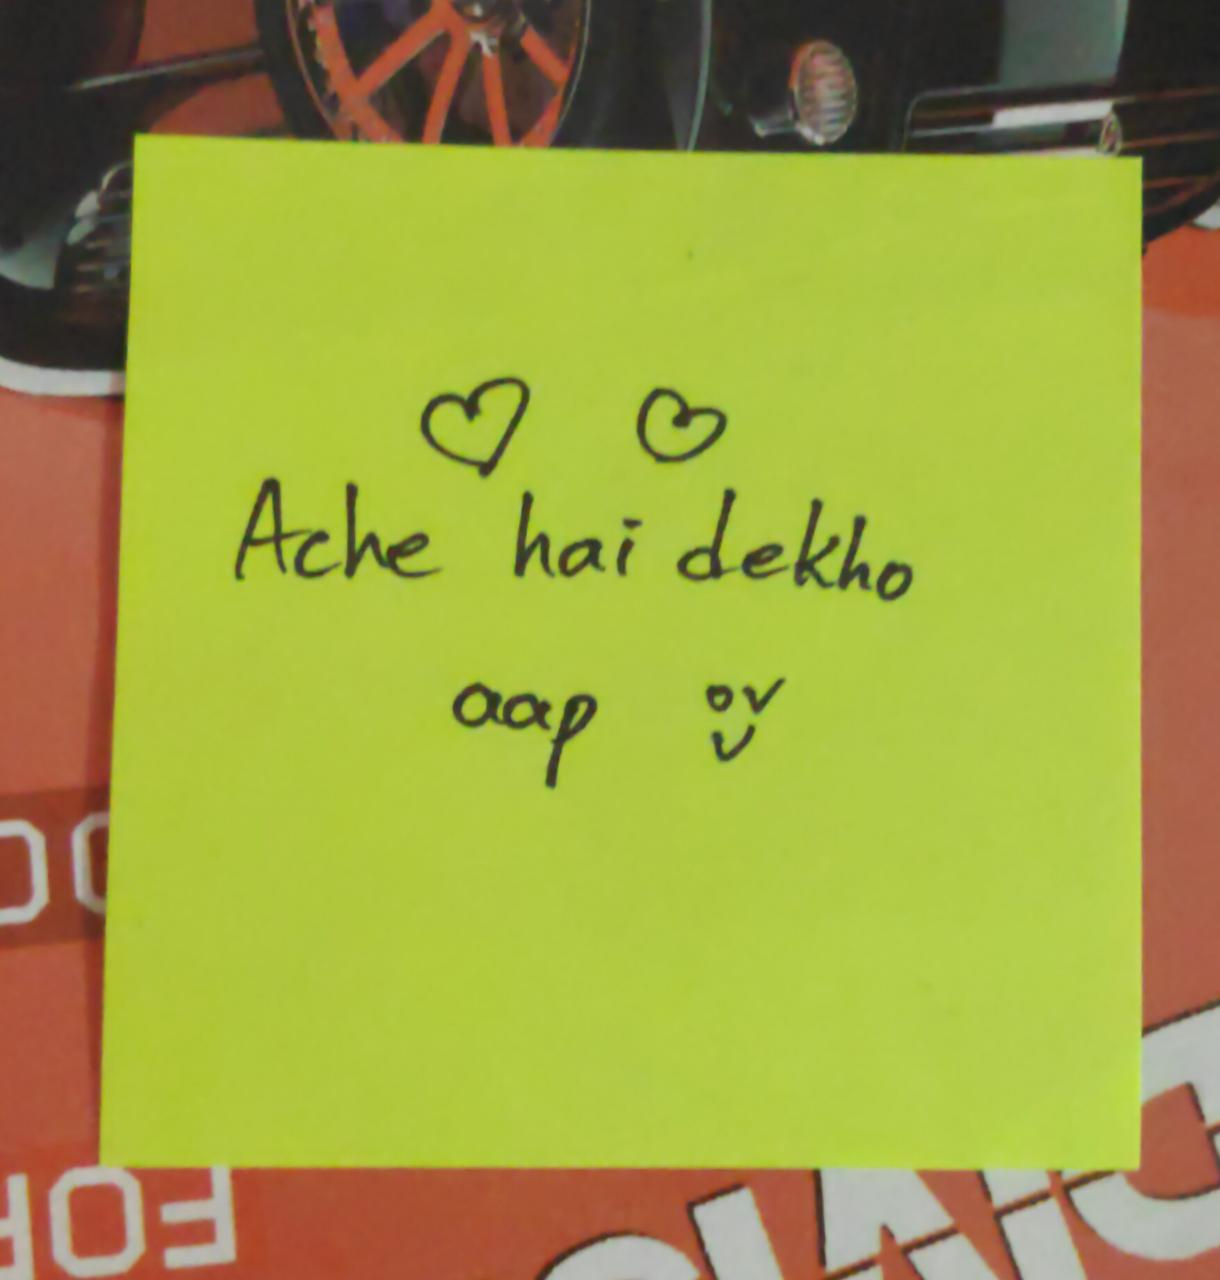 Ache hai dekho
aap
FOR